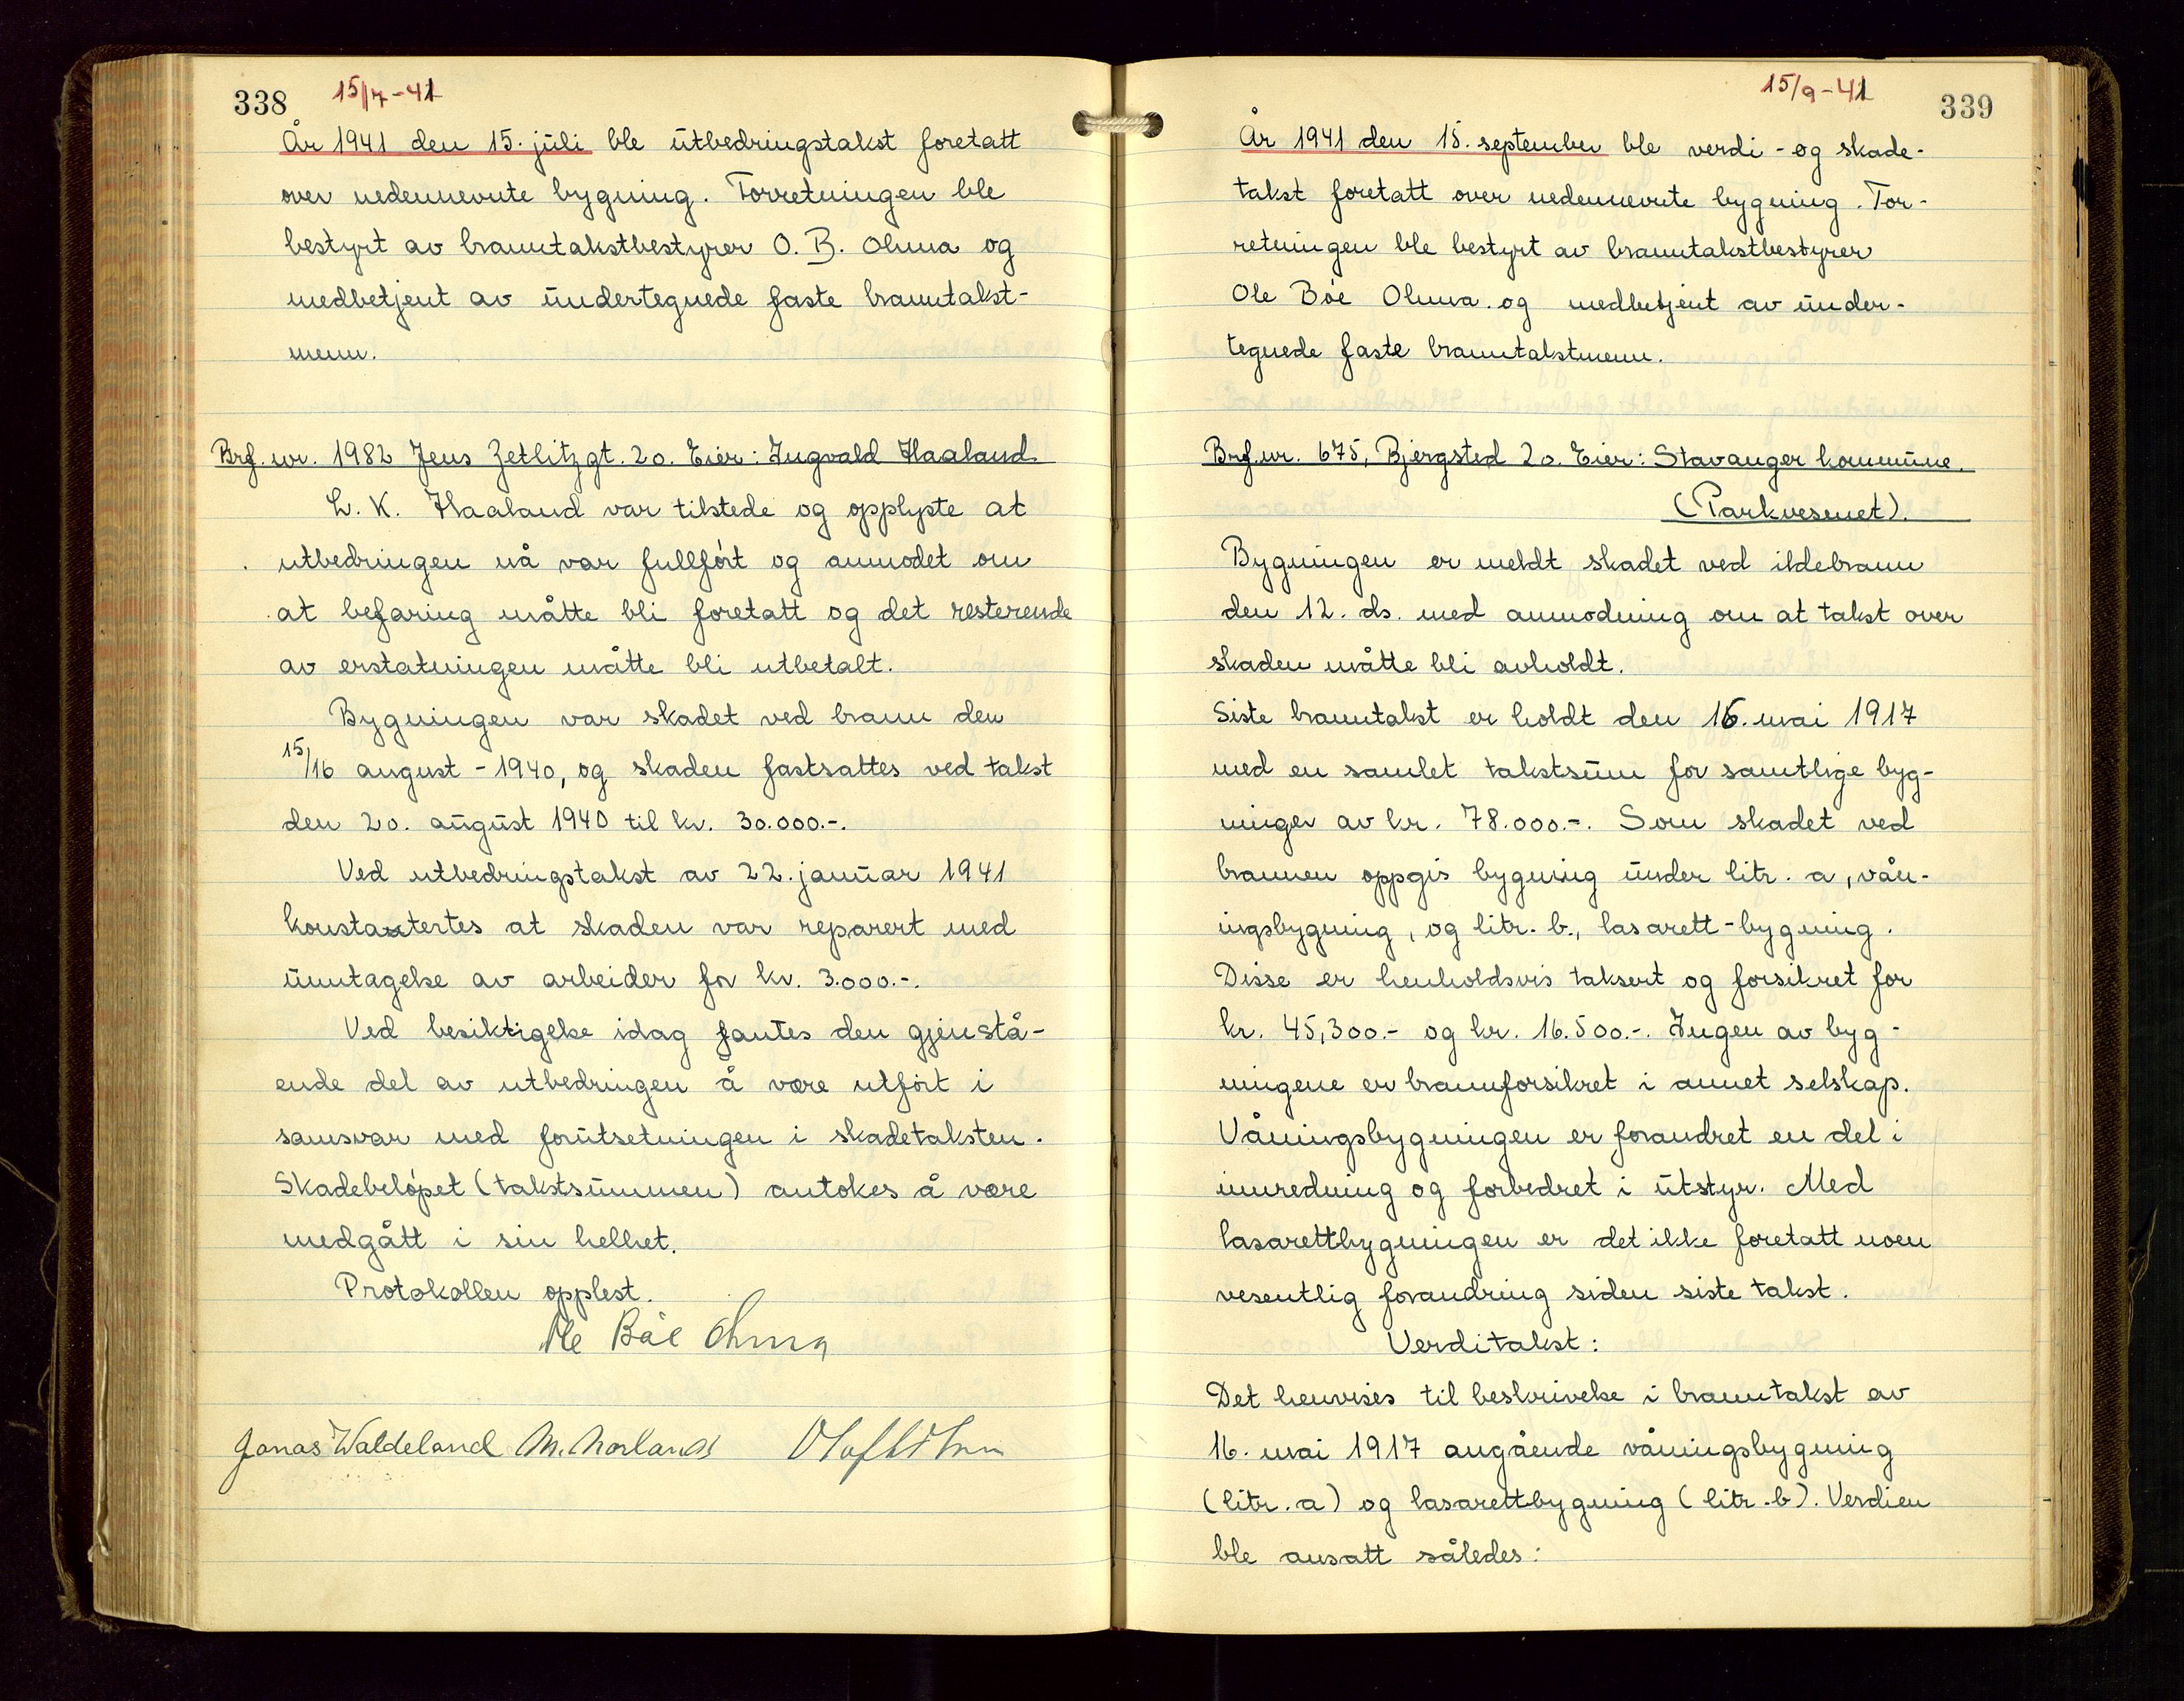 338
15/7-41
År 1941 den 15. juli ble utbedringstakst foretatt
over nedennevnte bygning. Forretningen ble
bestyrt av branntakstbestyrer O. B. Ohma og
medbetjent av undertegnede faste branntakst-
menn.
Brf. nr. 1982 Jens Zetlitzgt. 20. Eier: Ingvald Haaland
L. K. Haaland var tilstede og opplyste at
utbedringen nå var fullført og anmodet om
at befaring måtte bli foretatt og det resterende
av erstatningen måtte bli utbetalt.
Bygningen var skadet ved brann den
15/16 august - 1940, og skaden fastsattes ved takst
den 20. august 1940 til kr. 30.000.-.
Ved utbedringstakst av 22. januar 1941
konstatertes at skaden var reparert med
unntagelse av arbeider for kr. 3.000.-.
Ved besiktigelse idag fantes den gjenstå-
ende del av utbedringen å være utført i
samsvar med forutsetningen i skadetaksten.
Skadebeløpet (takstsummen) antokes å være
medgått i sin helhet.
Protokollen opplest.
Ole Bøe Ohma
Jonas Waldeland M. Norland
339
15/9-41
År 1941 den 15. september ble verdi - og skade-
takst foretatt over nedennevnte bygning. For-
retningen ble bestyrt av branntakstbestyrer
Ole Bøe Ohma og medbetjent av under-
tegnede faste branntakstmenn.
Brf. nr. 675, Bjergsted 20. Eier: Stavanger kommune.
(Parkvesenet).
Bygningen er meldt skadet ved ildebrann
den 12. ds. med anmodning om at takst over
skaden måtte bli avholdt.
Siste branntakst er holdt den 16. mai 1917
med en samlet takstsum for samtlige byg-
ninger av kr. 78.000.-. Som skadet ved
brannen oppgis bygning under litr. a, vån-
ingsbygning, og litr. b., lasarett-bygning.
Disse er henholdsvis taksert og forsikret for
kr. 45,300.- og kr. 16.500.-. Ingen av byg-
ningene er brannforsikret i annet selskap.
Våningsbygningen er forandret en del i
innredning og forbedret i utstyr. Med
lasarettbygningen er det ikke foretatt noen
vesentlig forandring siden siste takst.
Verditakst:
Det henvises til beskrivelse i branntakst av
16. mai 1917 angående våningsbygning
(litr. a) og lasarettbygning (litr. b). Verdien
ble ansatt således: